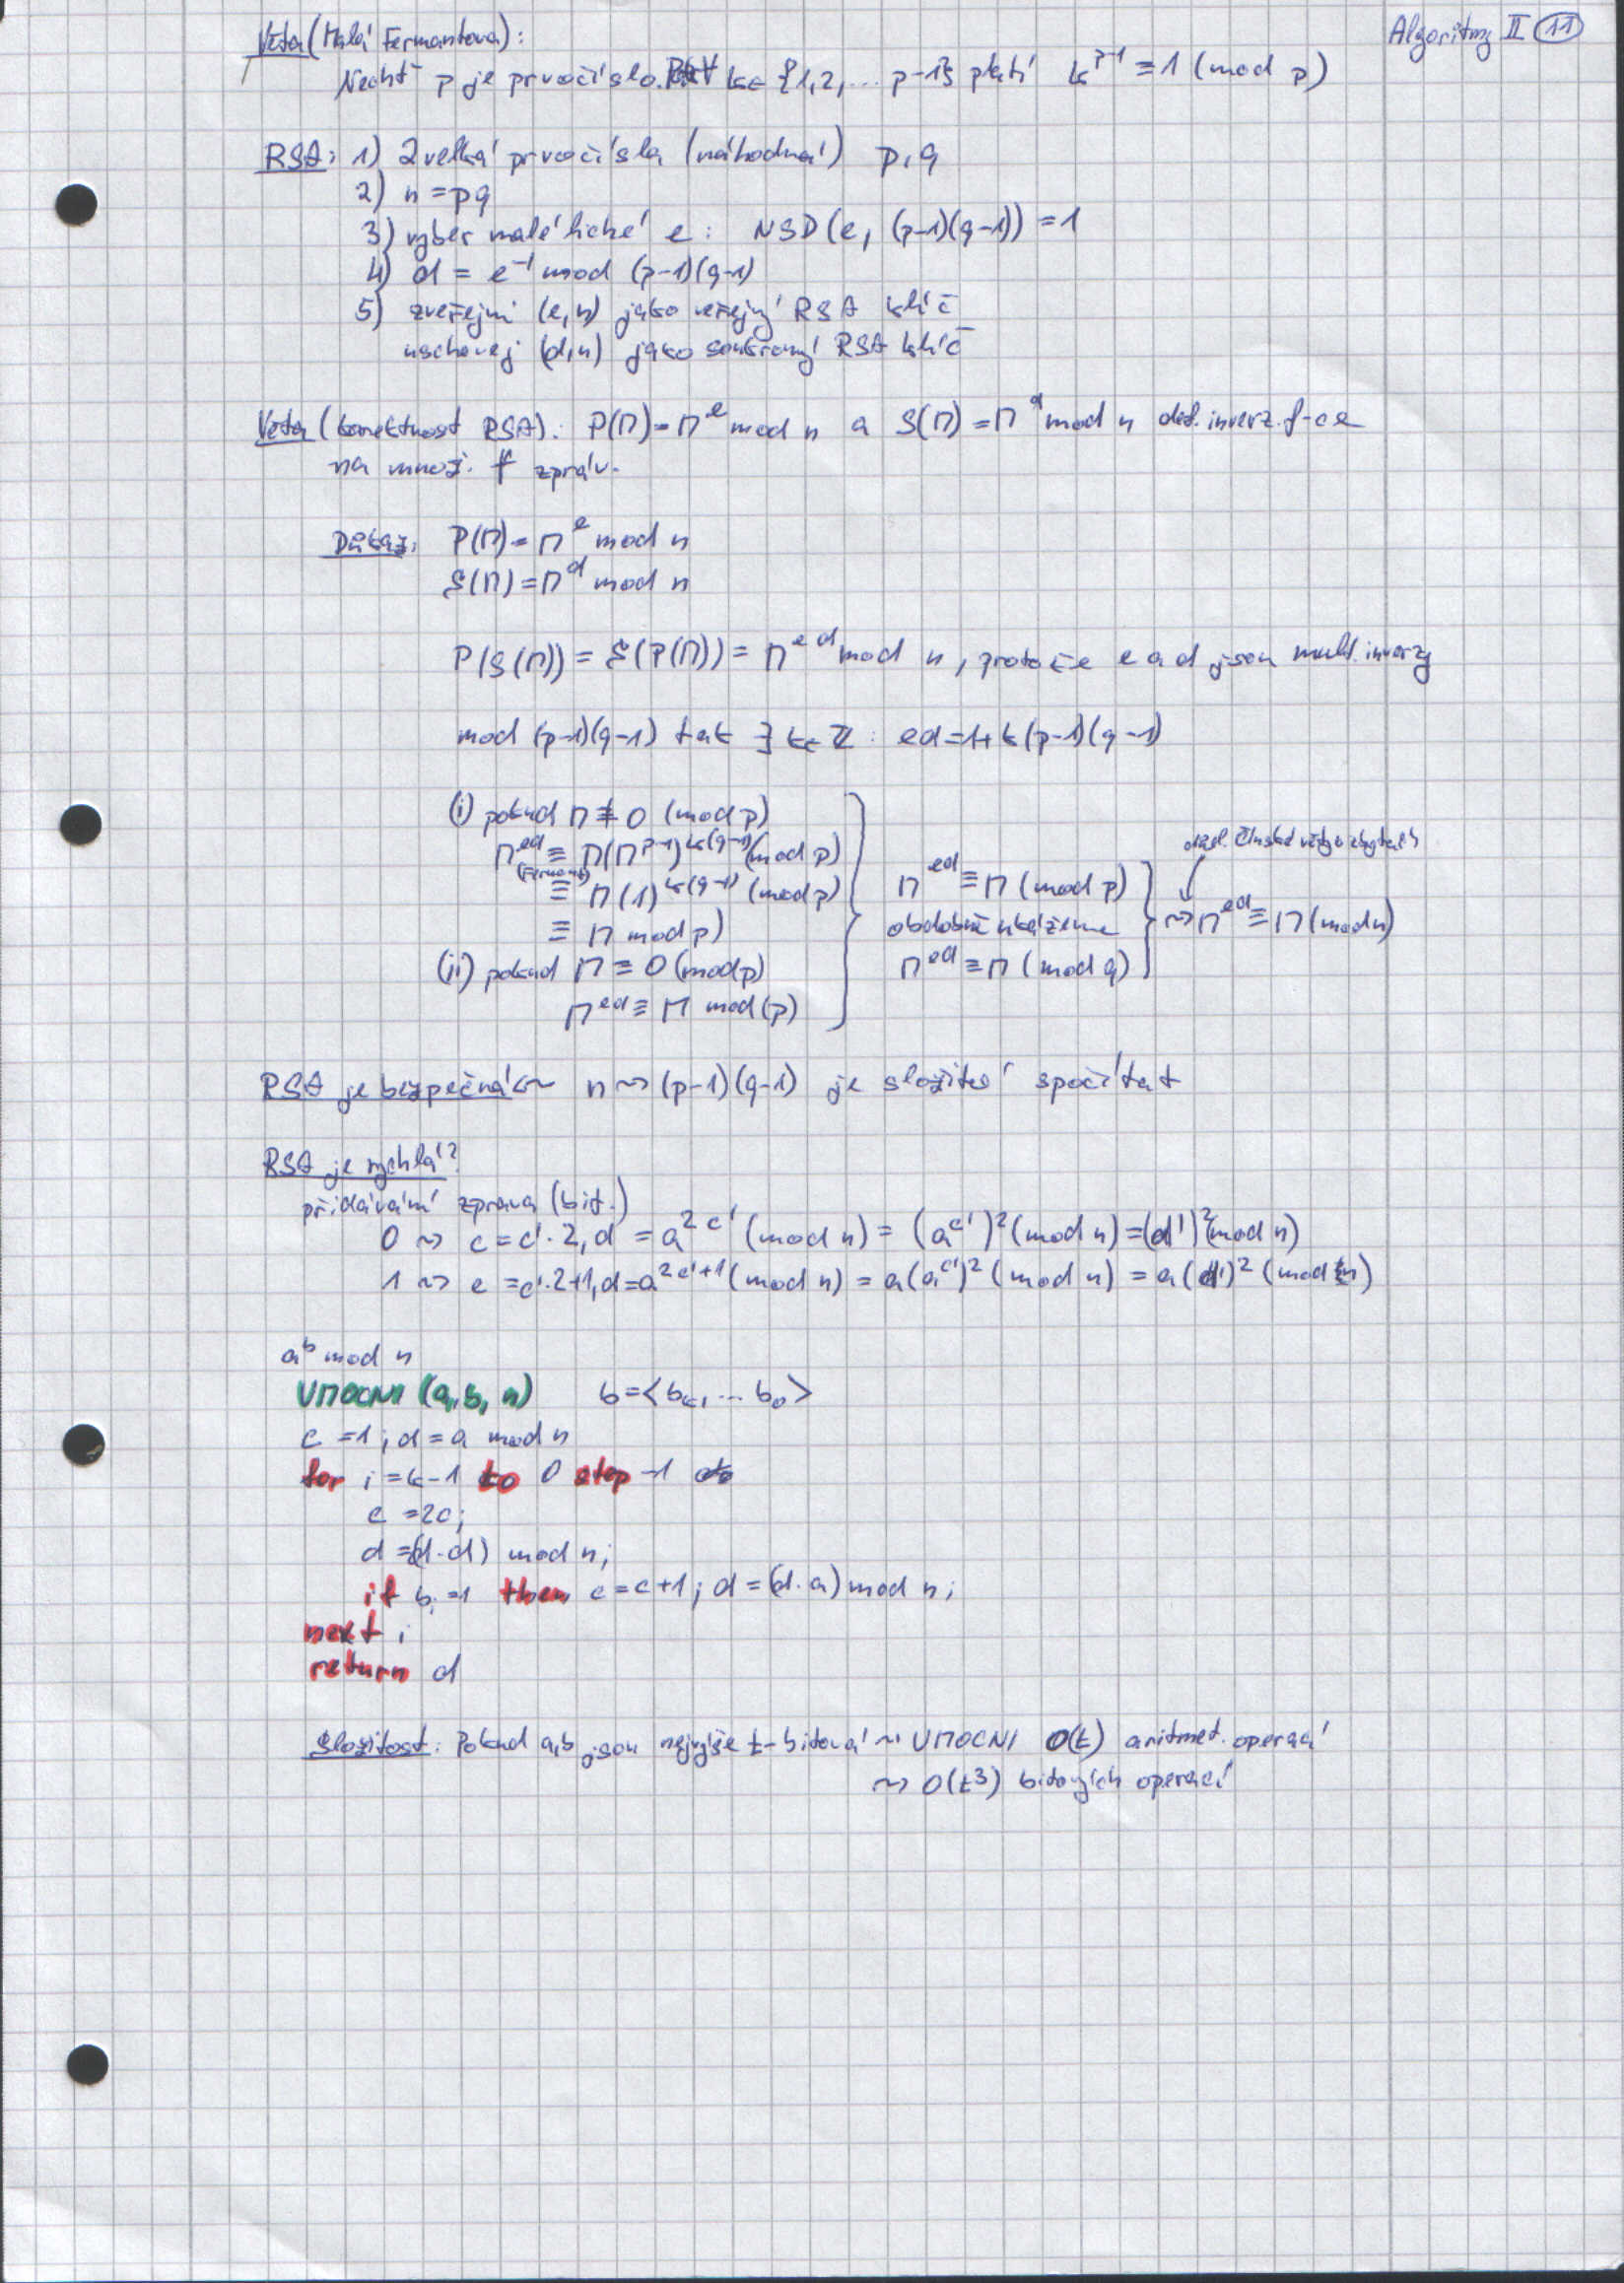 Algoritmy II 11
Věta (Malá Fermantova):
Nechť p je prvočíslo. Pak ∀ k∈{1,2,... p-1} platí k^(p-1) ≡ 1 (mod p)
RSA: 1) 2 velká prvočísla (náhodná) p,q
2) n = pq
3) vyber malé liché e: NSD(e, (p-1)(q-1)) = 1
4) d = e^-1 mod (p-1)(q-1)
5) zveřejni (e,n) jako veřejný RSA klíč
uschovej (d,n) jako soukromý RSA klíč
Věta (korektnost RSA): P(M) = M^e mod n a S(M) = M^d mod n def. inverz. f-ce
na množ. zpráv.
Důkaz: P(M) = M^e mod n
S(M) = M^d mod n
P(S(M)) = S(P(M)) = M^(ed) mod n, protože e a d jsou mult. inverzy
mod (p-1)(q-1) tak ∃ k∈Z: ed = 1+k(p-1)(q-1)
(i) pokud M ≢ 0 (mod p)
M^(ed) ≡ M(M^(p-1))^(k(q-1)) (mod p)
(Fermant) ≡ M(1)^(k(q-1)) (mod p)
≡ M mod p)
(ii) pokud M ≡ 0 (mod p)
M^(ed) ≡ M mod (p)
M^(ed) ≡ M (mod p)
obdobně ukážeme
M^(ed) ≡ M (mod q)
důsl. Čínské věty o zbytcích
⇝ M^(ed) ≡ M (mod n)
RSA je bezpečná ⇜ n ⇝ (p-1)(q-1) je složité spočítat
RSA je rychlá?
přidávání zprava (bit.)
0 ⇝ c = c'·2, d = a^(2c') (mod n) = (a^(c'))^2 (mod n) = (d')^2 (mod n)
1 ⇝ c = c'·2+1, d = a^(2c'+1) (mod n) = a(a^(c'))^2 (mod n) = a(d')^2 (mod n)
a^b mod n
UMOCNI (a,b,n) b = <b_k, ... b_0>
c = 1; d = a mod n
for i = k-1 to 0 step -1 do
c = 2c;
d = (d·d) mod n;
if b_i = 1 then c = c+1; d = (d·a) mod n;
next i
return d
Složitost: Pokud a,b jsou nejvýše t-bitová ⇝ UMOCNI O(t) aritmet. operací
⇝ O(t^3) bitových operací